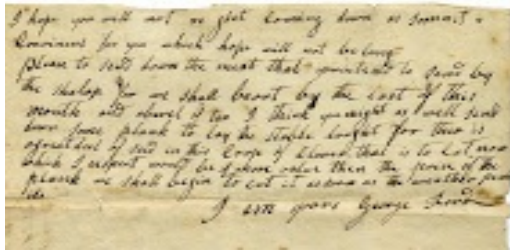 I hope you will not neglect Coming down as soon as
Convinient for you which hope will not be long
please to send down the meat that you intend to send by
the shalop for we shall be out by the last of this
month and a barrel if too I think you might as well send
down some plank to lay the stable
of seed in this Crop of Clover that is to Cut now
which I expect would be of more value then the price of the
plank we shall begin to cut it as soon as the weather
I am yours George